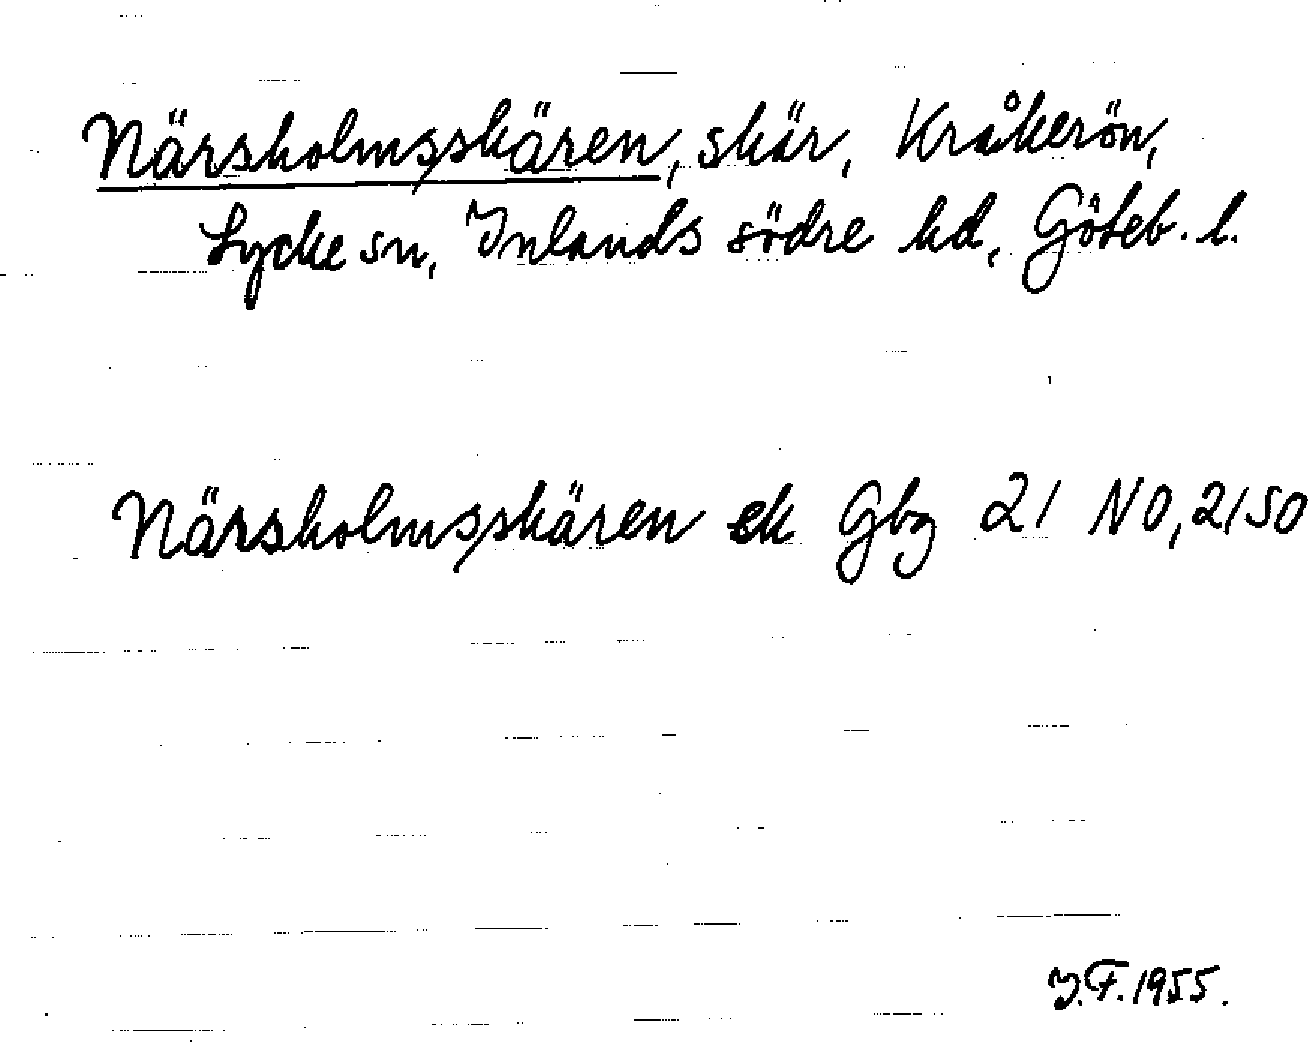 Närsholmsskären, skär, Kråkerön,
Lycke sn, Inlands södre hd, Göteb. l.
Närsholmsskären ek Gbg 21 NO, 21 SO
I.F. 1955.